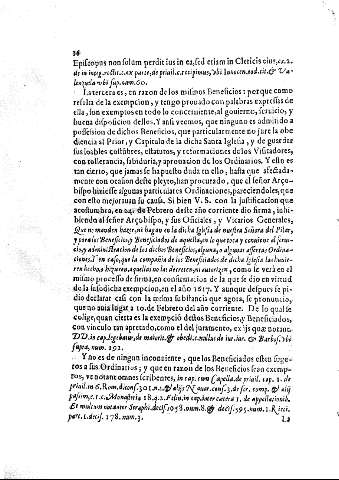 36
Episcopus non solùm perdit ius in ea, sed etiam in Clericis eius, ex 2.
de in integ. restit. c. ex parte, de priuil. c. recipimus, vbi Innocen. eod. tit. & Va-
lenzuela vbi sup. num. 60.
La tercera es, en razon de los mismos Beneficios: porque como
resulta de la exempcion, y tengo prouado con palabras expressas de
ella, son exemptos en todo lo concerniente, al gouierno, seruicio, y
buena disposicion dellos. Y assi vemos, que ninguno es admitido a
possession de dichos Beneficios, que particularmente no jure la obe
diencia al Prior, y Capitulo de la dicha Santa Iglesia, y de guardar
sus loables costũbres, estatutos, y reformaciones de los Visitadores,
con tollerancia, sabiduria, y aprouacion de los Ordinarios. Y ello es
tan cierto, que jamas se ha puesto duda en ello, hasta que afectada-
mente con ocasion deste pleyto, han procurado, que el señor Arço-
bispo hiziesse algunas particulares Ordinaciones, pareciendoles, que
con esto mejorauan su causa. Si bien V. S. con la justificacion que
acostumbra, en de Febrero deste año corriente dio firma, inhi-
biendo al señor Arçobispo, y sus Oficiales, y Vicarios Generales,
Que no manden hazer, ni hagan en la dicha Iglesia de nuestra Señora del Pilar,
y para los Beneficios y Beneficiados de aquella, en lo que toca y concierne al serui-
cio, y administracion de los dichos Beneficios, alguna, o algunas assertas Ordina-
ciones. Y en caso, que la compañia de los Beneficiados de dicha Iglesia las huuie-
ren hecho, y aquellos no las decreten, ni autorizen, como se verà en el
mismo processo de firma, en confirmacion de la que se dio en virtud
de la susodicha exempcion, en el año 1617. Y aunque despues se pi-
dio declarar casi con la misma substancia que agora, se pronuncio,
que no auia lugar a 10. de Febrero del año corriente. De lo qual se
colige, quan cierta es la exempciõ destos Beneficios, y Beneficiados,
con vinculo tan apretado, como el del juramento, ex ijs quæ notant.
DD. in cap. legebatur, de maiorit. & obedi. c. nullus de iur. iur. & Barbos. vbi
supra, num. 192.
Y no es de ningun inconueniente, que los Beneficiados estèn suge-
tos a sus Ordinarios; y que en razon de los Beneficios sean exemp-
tos, vt notant omnes scribentes, in cap. cum Capella, de priuil. cap. 1. de
priuil. in 6. Rom. decis. 301. n. 2. & alijs Nauar. cons. 3. de for. comp. & alij
passim, c. 1. c. Monasteria 18. q. 2. Felin. in cap. inter cætera 1. de appellationib.
Et multum notanter Seraphi. decis. 1058. num. 8. & decis. 595. num. 1. Ricci.
part. 1. decis. 178. num. 3.
La